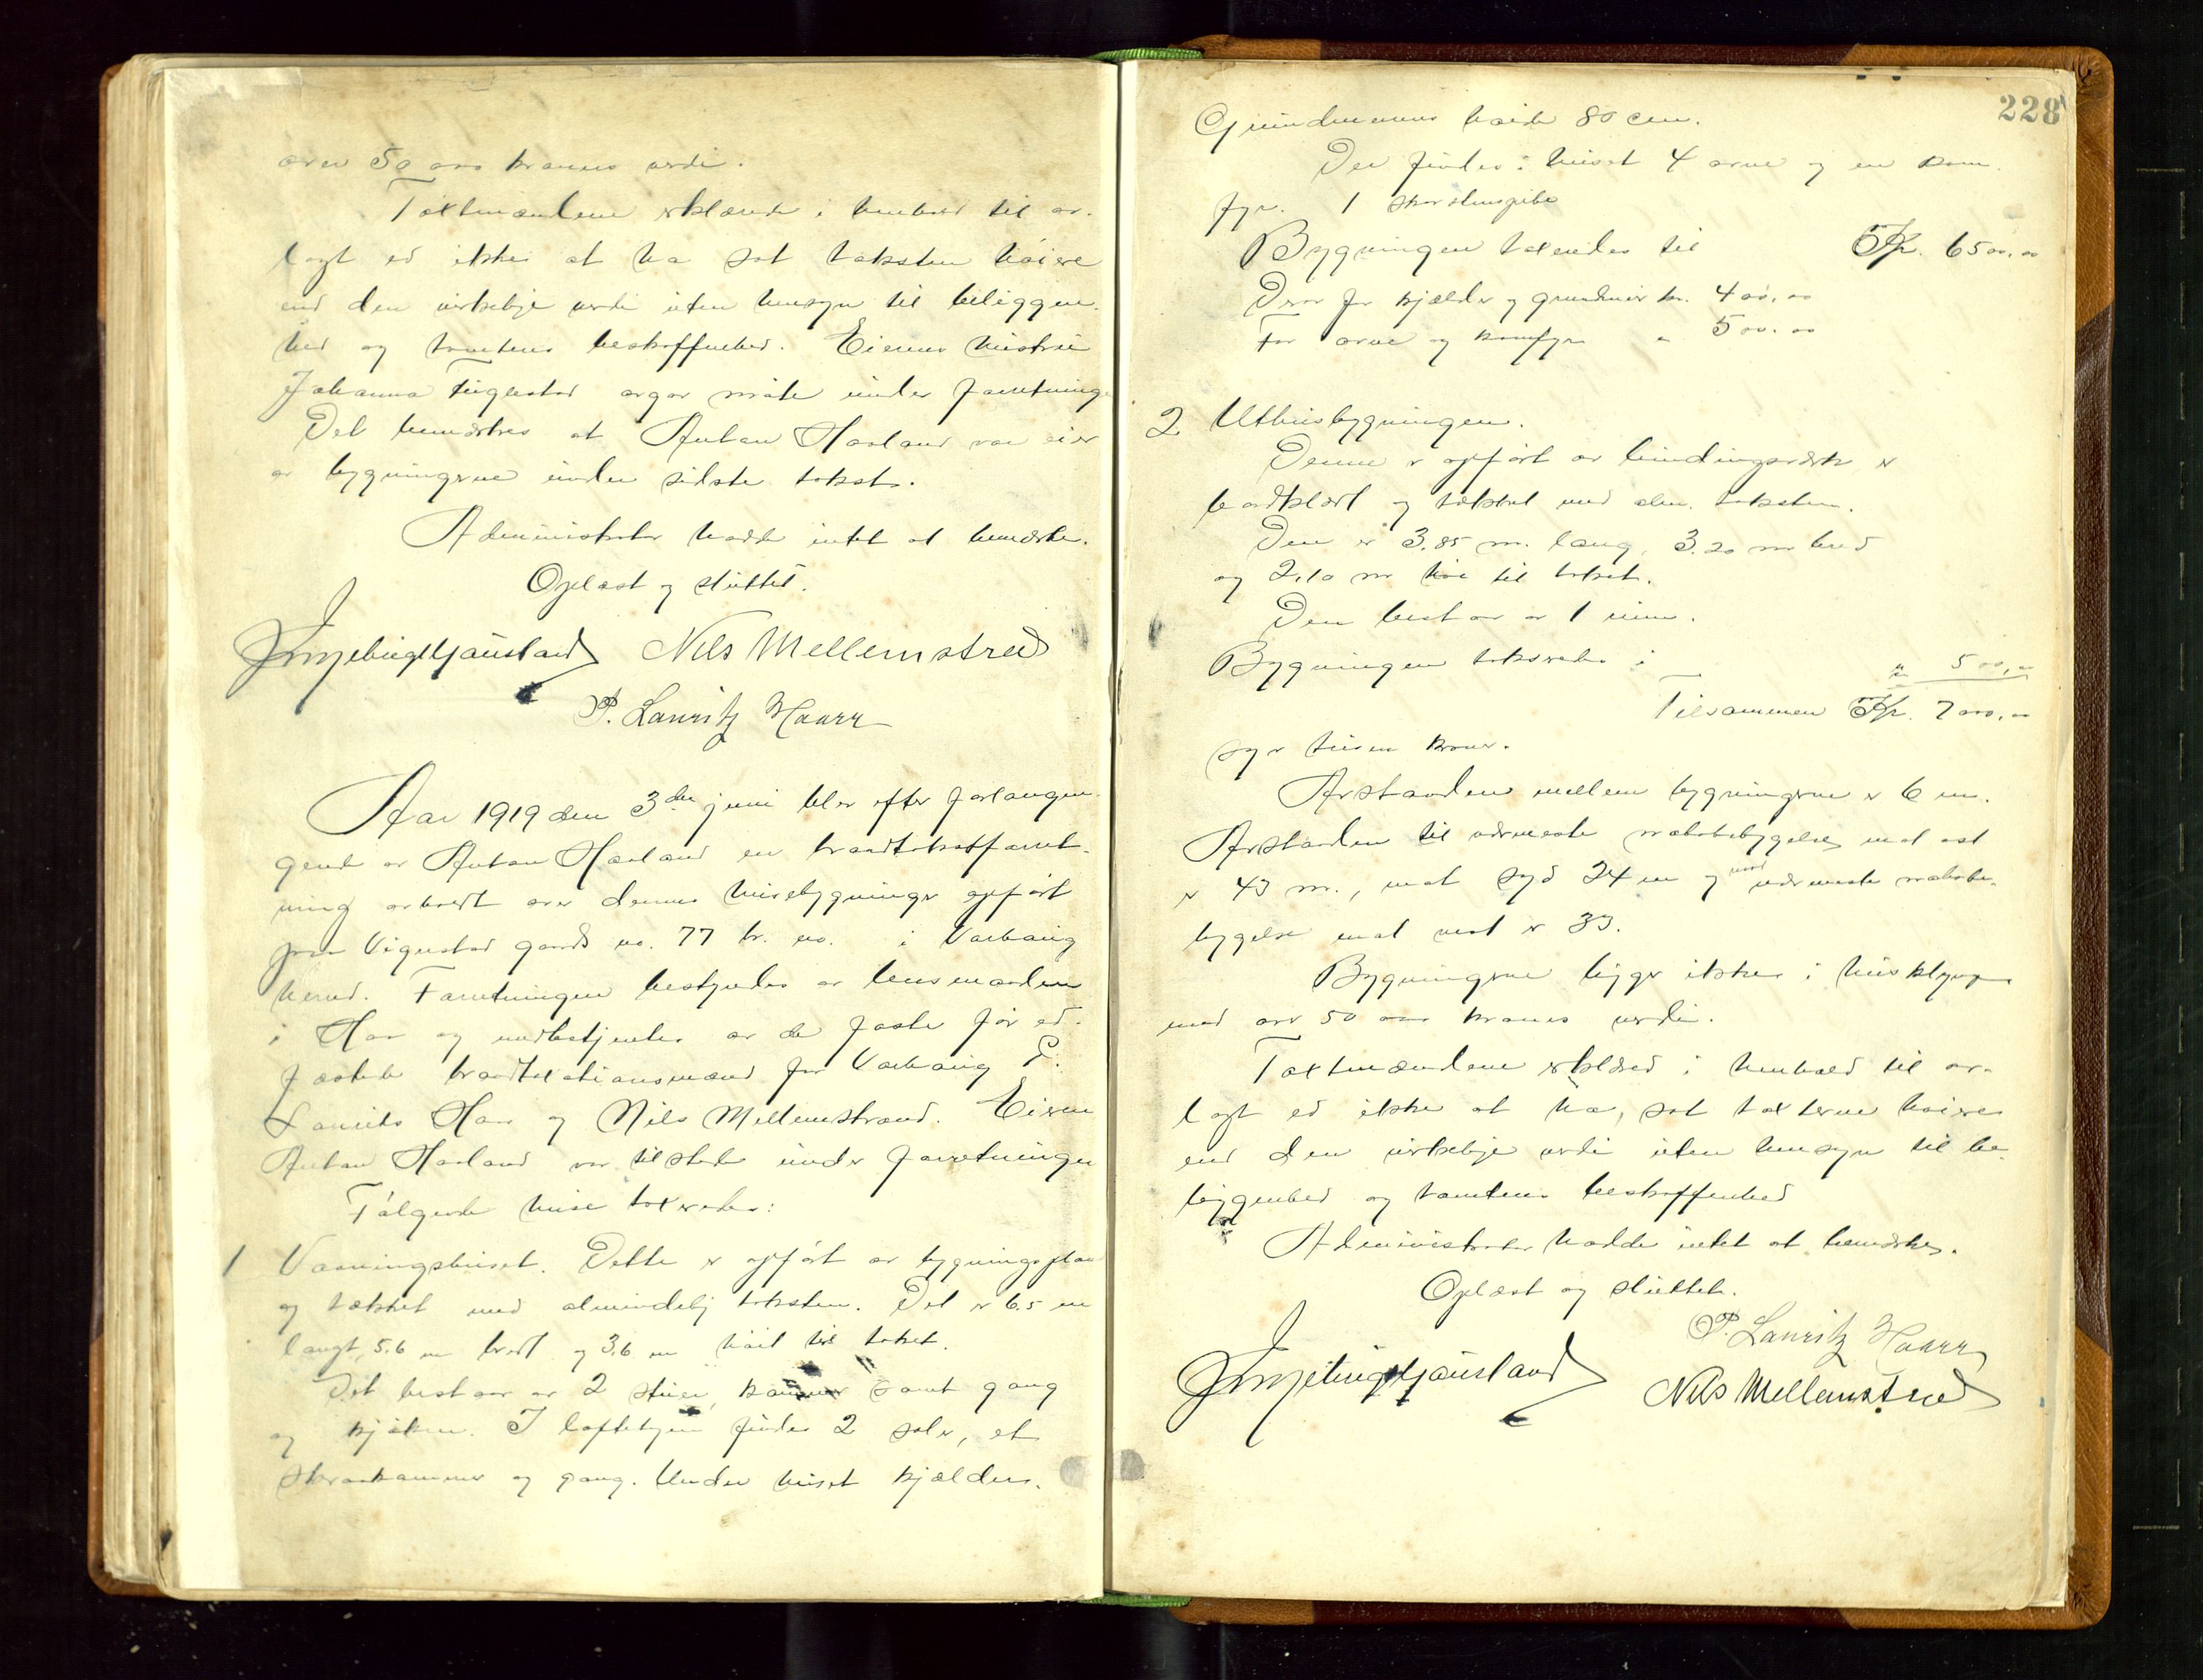 over 50 000 kroners verdi.
Takstmændene erklærede i henhold til av-
lagt ed ikke at ha sat taksten høiere
end den virkelige verdi uten hensyn til beliggen-
hed og tomtens beskaffenhed. Eierens hustru
Johanna Fuglestad avgav møte under forretning.
Det bemerkes at Anton Haaland var eier
av bygningerne under sidste takst.
Administrator hadde intet at bemerke.
Oplæst og sluttet.
Nils Mellemstrand
P. Lauritz Haarr
Aar 1919 den 3die juni blev efter forlangen-
gende av Anton Haaland en brandtakstforret-
ning avholdt over dennes husebygninger opført
paa Vigrestad gaards no. 77 br. no. i Varhaug
herred. Forretningen bestyredes av lensmanden
i Haa og medbetjentes av de faste før ed-
fæstede brandtaxationsmænd for Varhaug P.
Laurits Haar og Nils Mellemstrand. Eieren
Anton Haaland var tilstede under forretningen
Følgende huse taxeredes:
1 Vaaningshuset. Dette er opført av bygningsplan
og tækket med almindelig taksten. Det er 6.5 m
langt, 5.6 m bredt og 3.6 m høit til taket.
Det bestaar av 2 stuer, kammer samt gang
og kjøken. I loftetagen findes 2 saler, et
skraakammer og gang. Under huset kjælder.
228
Grundmurens høide 80 cm.
Der findes i huset 4 ovne og en kom-
fyr. 1 skorstenspibe
Bygningen taxeredes til Kr. 6500,00
Derav for kjælder og grundmur kr. 400,00
For ovne og komfyr " 500.00
2 Uthusbygningen.
Denne er opført av bindingsverk er
bordklædt og tækket med alm. taksten.
Den er 3.85 m. lang, 3.20 m bred
og 2.10 m høi til taket.
Den bestaar av 1 rum.
Bygningen takseredes i " 500,00
Tilsammen Kr. 7000,00
syv tusen kroner.
Avstanden mellem bygningerne er 6 m.
Avstanden til nærmeste nabobebygelse mot øst
er 43 m., mot syd 24 m og mot nærmeste nabobe-
bygelse mot vest er 33.
Bygningerne ligger ikke i husklynge
med over 50 000 kroners verdi.
Taxtmændene erklæred i henhold til av-
lagt ed ikke at ha, sat taxterne høiere
end den virkelige verdi uten hensyn til be-
liggenhed og tomtens beskaffenhed
Administrator hadde intet at bemerke.
Oplæst og sluttet.
P. Lauritz Haarr
Nils Mellemstrand